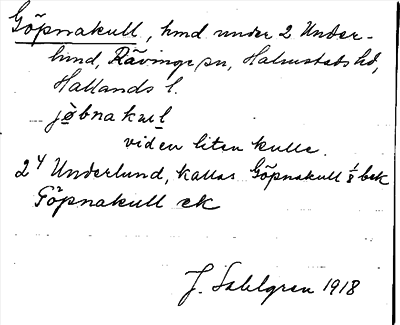 Göpnakull, hmd under 2 Under-
lund, Rävinge sn, Halmstads hd,
Hallands l.
jøbnakul
vid en liten kulle.
2 4 Underlund, kallas Göpnakull 1/8 bek
Göpnakull ek
J. Sahlgren 1918